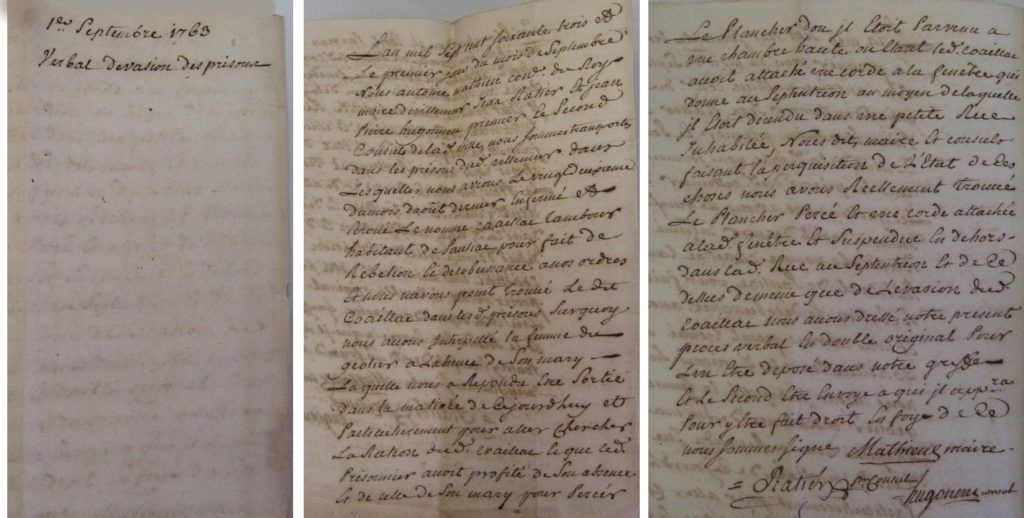 1er Septembre 1763
Verbal devasion des prisons
Lan mil sept cent soixante trois et
Le premier jour du mois de Septembre
Nous antoine mathieu cons.er du Roy
maire de villemur Jean Ratier Et Jean
Pierre hugonenc premier Et Second
Consuls de lad. ville, nous sommes transportés
dans les prisons dud. villemur dans
Lesquelles nous avions Le vingt deuxieme
du mois daout dernier Enfermé et
Ecroué Le nommé coaillac tambour
habitant de pour fait de
Rebelion Et desobeissance a nos ordres
Et nous navons point trouvé Le dit
Coaillac dans lesd. prisons Surquoy
nous avons Interpellé la femme du
geolier a Labsence de Son mary
Laquelle nous a Repondu Etre Sortie
dans la matinée de cejourdhuy et
Particulierement pour aller chercher
La Ration du d. coaillac Et que led.
Prisonnier avoit profité de Son absence
Et de celle de Son mary pour Percér
Le Plancher dou jl Etoit Parvenu a
une chambre haute ou Etant led. Coaillac
avoit attaché une corde a la fenêtre qui
donne au Septentrion au moyen de laquelle
jl Etoit decendu dans une petite Rue
Inhabitée, Nous dits maire Et consuls
faisant la perquisition de L'Etat de Ces
choses nous avons Reellement trouvé
Le Plancher Percé Et une corde attachée
a lad. fenêtre Et Suspendue En dehors
dans lad. Rue au Septentrion Et de Ce
dessus demême que de Levasion dud.
coaillac nous avons dressé notre present
procés verbal En double original Pour
Lun Etre deposé dans notre greffe
Et Le Second Etre Envoyé a qui jl app.ra
Pour y Etre fait droit En foy de Ce
nous Sommes Signés Mathieu maire
Ratier p.er Consul
hugonenc consul